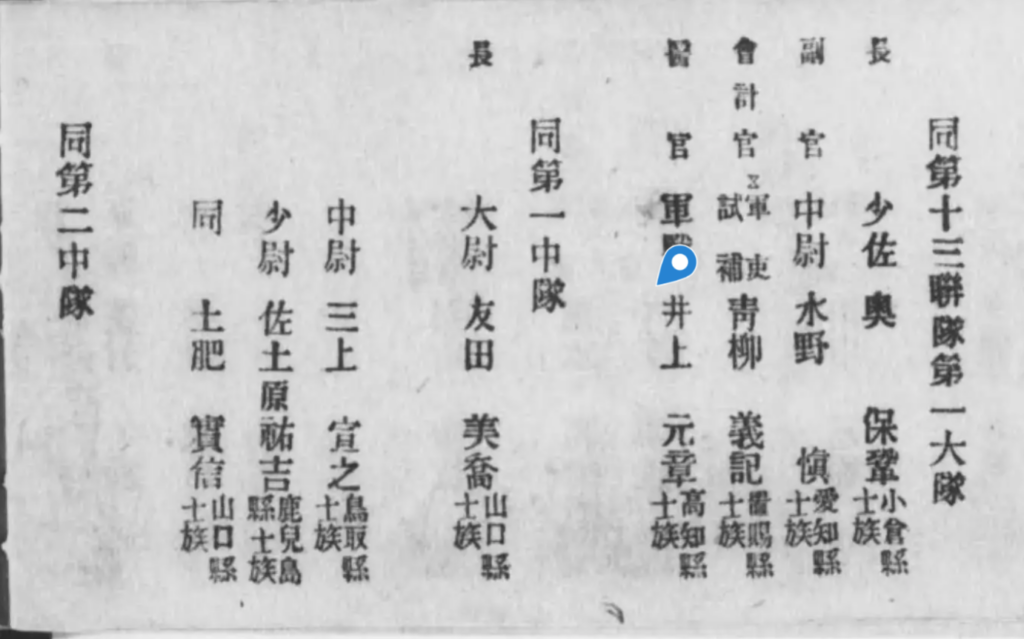 同第十三聯隊第一大隊
長 少佐 奥 保鞏 小倉縣士族
副官 中尉 水野 愼 愛知縣士族
會計官 軍吏試補 靑柳 義記 置賜縣士族
醫官 軍 井上 元章 高知縣士族
同第一中隊
長 大尉 友田 美喬 山口縣士族
中尉 三上 宣之 鳥取縣士族
少尉 佐土原祐吉 鹿兒島縣士族
同 土肥 實信 山口縣士族
同第二中隊